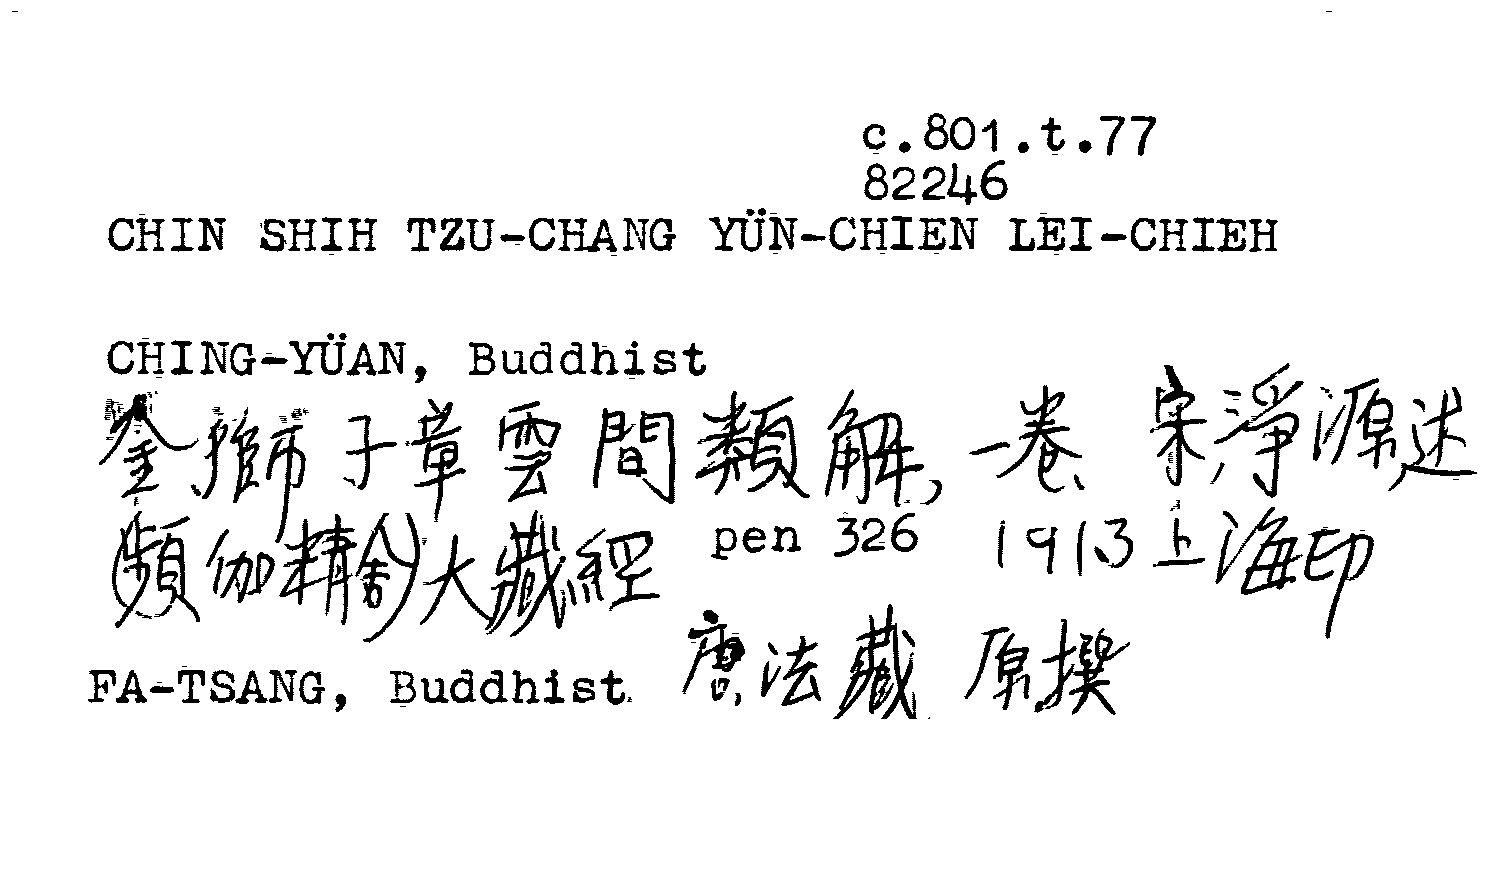 c.801.t.77
82246
CHIN SHIH TZU-CHANG YÜN-CHIEN LEI-CHIEH
CHING-YÜAN, Buddhist
金獅子章雲間類解, 一卷 宋淨源述
(頻伽精舍)大藏經 pen 326 1913上海印
FA-TSANG, Buddhist 唐法藏 原撰